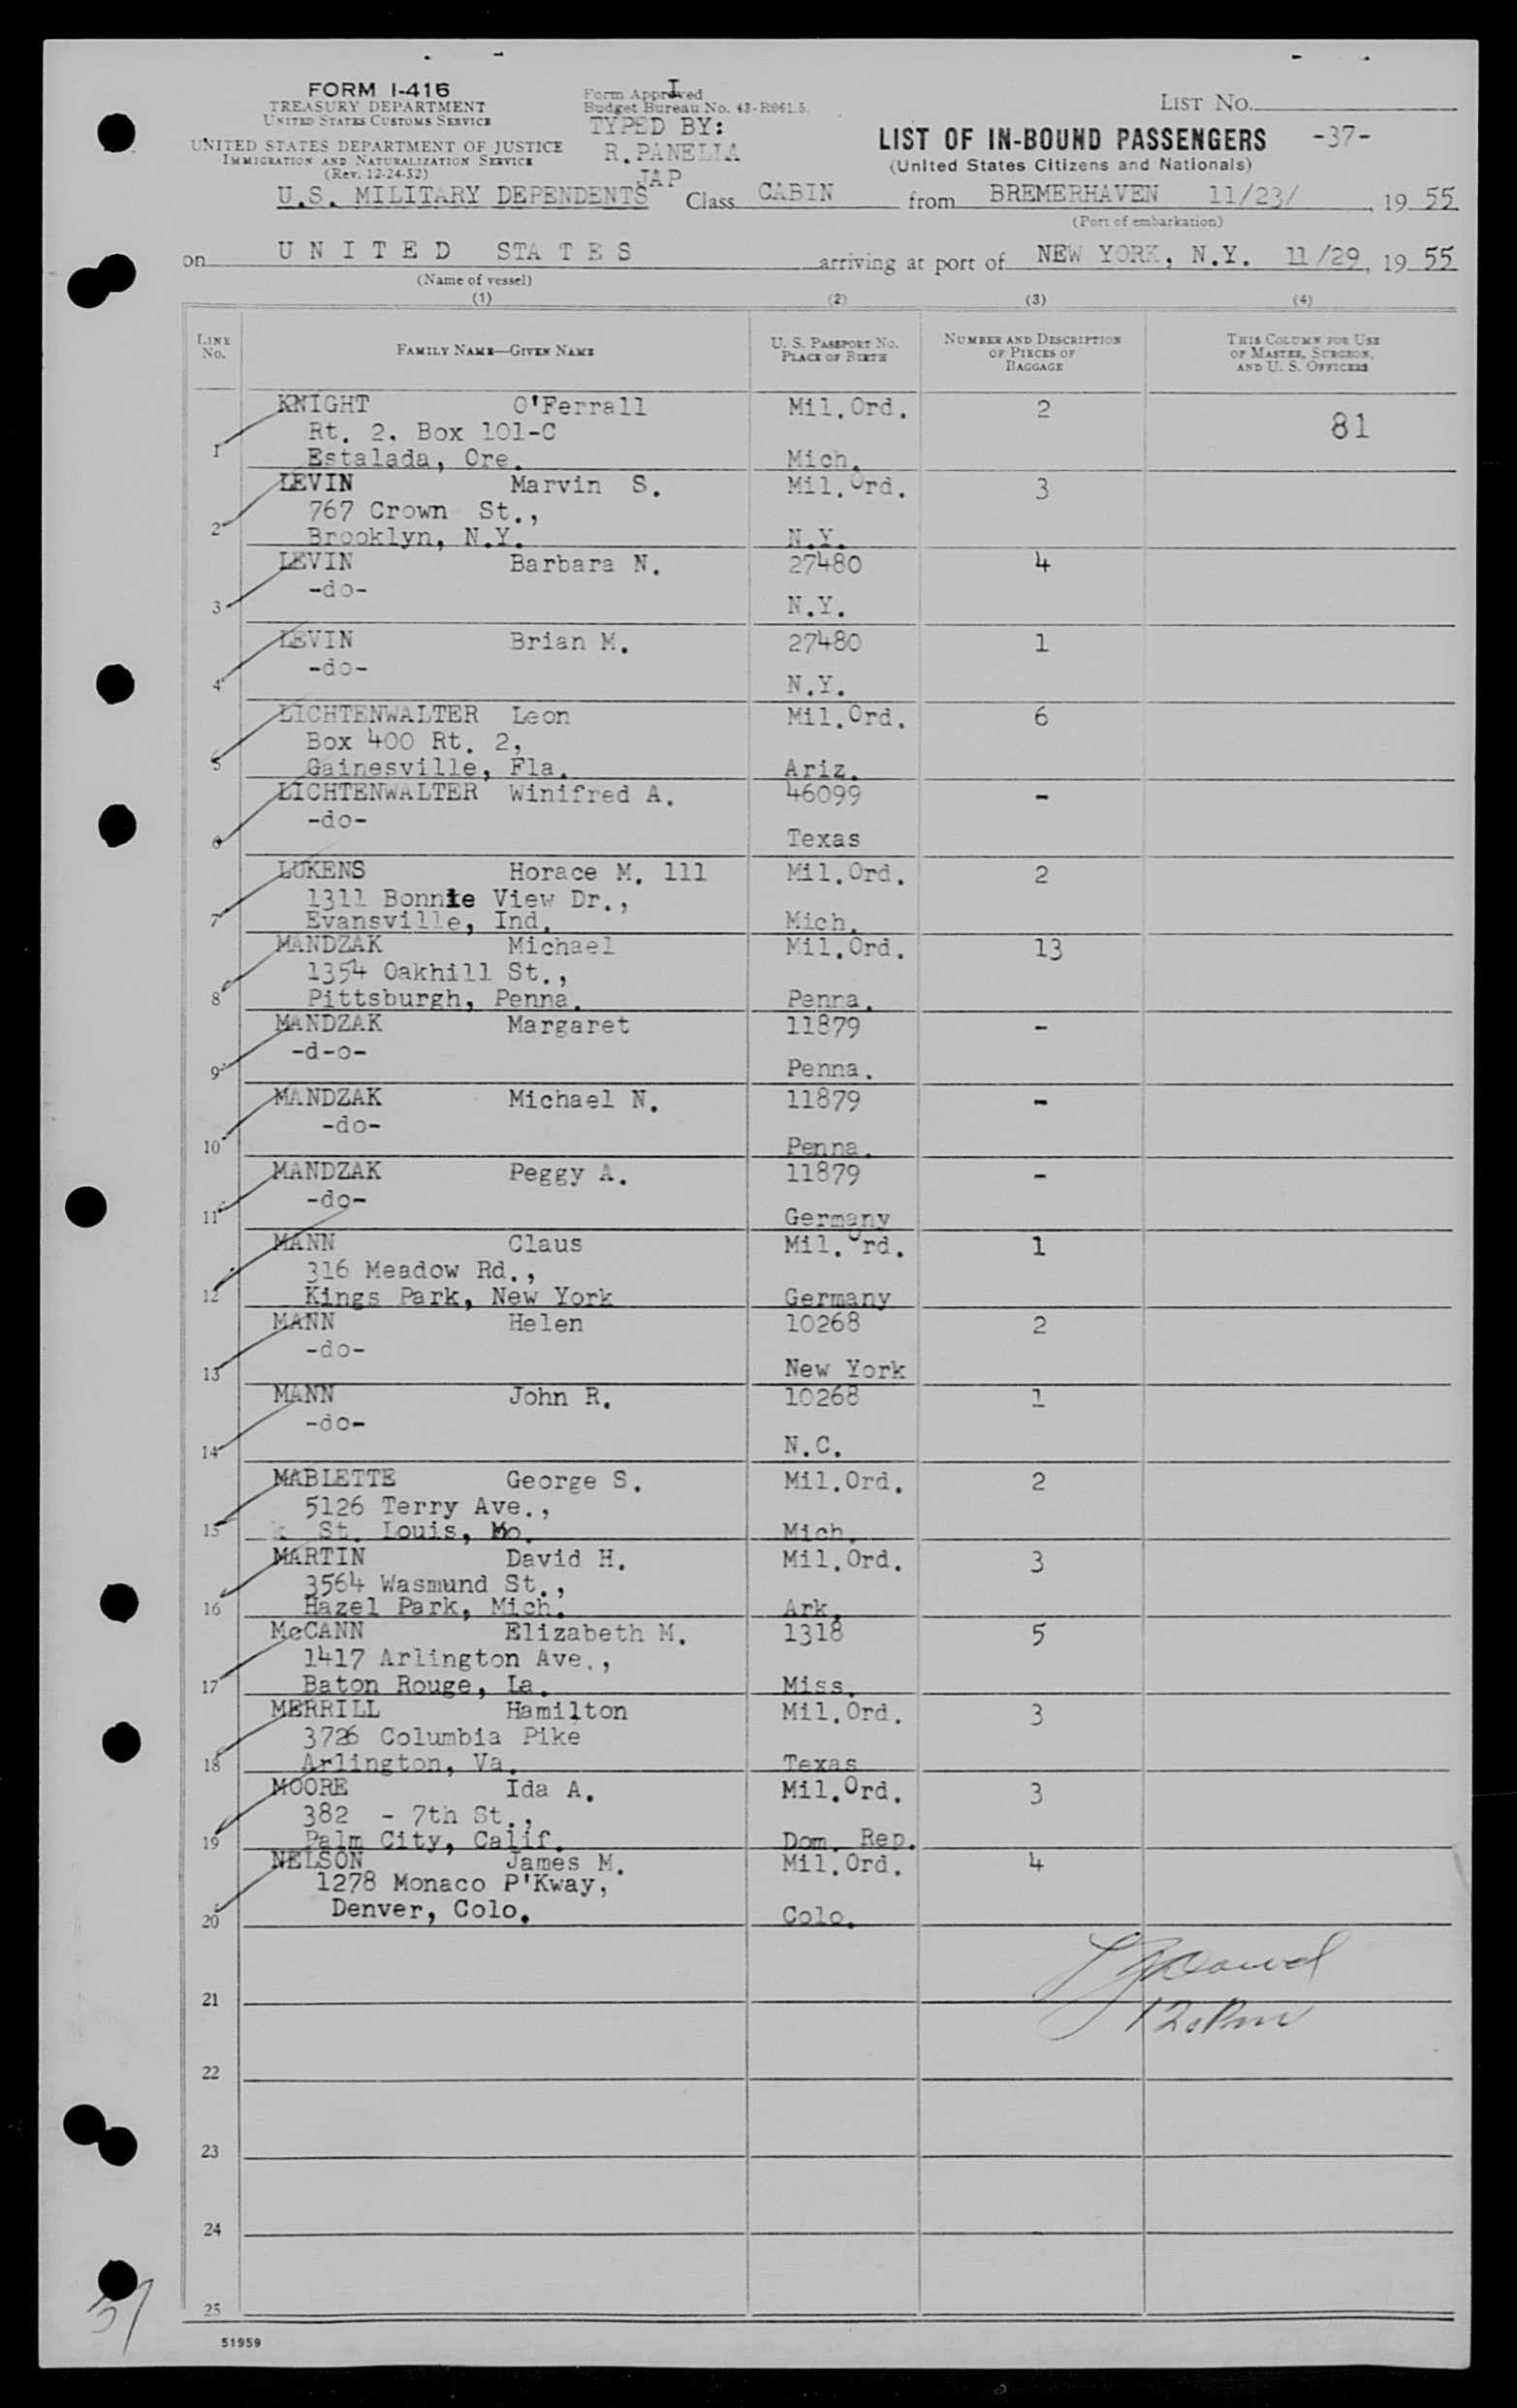 FORM I-416
TREASURY DEPARTMENT
UNITED STATES CUSTOMS SERVICE
UNITED STATES DEPARTMENT OF JUSTICE
IMMIGRATION AND NATURALIZATION SERVICE
(Rev. 12-24-52)
Form Approved
Budget Bureau No. 43-R061.5.
TYPED BY:
R.PANELLA
JAP
LIST NO.
LIST OF IN-BOUND PASSENGERS -37-
(United States Citizens and Nationals)
U.S. MILITARY DEPENDENTS Class CABIN from BREMERHAVEN 11/23/, 19 55
(Port of embarkation)
on UNITED STATES arriving at port of NEW YORK, N.Y. 11/29, 19 55
(Name of vessel)
(1) (2) (3) (4)
LINE No. FAMILY NAME—GIVEN NAME U. S. PASSPORT NO. PLACE OF BIRTH NUMBER AND DESCRIPTION OF PIECES OF BAGGAGE THIS COLUMN FOR USE OF MASTER, SURGEON, AND U. S. OFFICERS
KNIGHT O'Ferrall Mil.Ord. 2 81
Rt. 2. Box 101-C
1 Estalada, Ore. Mich.
LEVIN Marvin S. Mil.Ord. 3
767 Crown St.,
2 Brooklyn, N.Y. N.Y.
LEVIN Barbara N. 27480 4
-do-
3 N.Y.
LEVIN Brian M. 27480 1
-do-
4 N.Y.
LICHTENWALTER Leon Mil.Ord. 6
Box 400 Rt. 2,
5 Gainesville, Fla. Ariz.
LICHTENWALTER Winifred A. 46099 -
-do-
6 Texas
LUKENS Horace M. 111 Mil.Ord. 2
1311 Bonnie View Dr.,
7 Evansville, Ind. Mich.
MANDZAK Michael Mil.Ord. 13
1354 Oakhill St.,
8 Pittsburgh, Penna. Penna.
MANDZAK Margaret 11879 -
-d-o-
9 Penna.
MANDZAK Michael N. 11879 -
-do-
10 Penna.
MANDZAK Peggy A. 11879 -
-do-
11 Germany
MANN Claus Mil.Ord. 1
316 Meadow Rd.,
12 Kings Park, New York Germany
MANN Helen 10268 2
-do-
13 New York
MANN John R. 10268 1
-do-
14 N.C.
MABLETTE George S. Mil.Ord. 2
5126 Terry Ave.,
15 St. Louis, Mo. Mich.
MARTIN David H. Mil.Ord. 3
3564 Wasmund St.,
16 Hazel Park, Mich. Ark.
McCANN Elizabeth M. 1318 5
1417 Arlington Ave.,
17 Baton Rouge, La. Miss.
MERRILL Hamilton Mil.Ord. 3
3726 Columbia Pike
18 Arlington, Va. Texas
MOORE Ida A. Mil.Ord. 3
382 - 7th St.,
19 Palm City, Calif. Dom. Rep.
NELSON James M. Mil.Ord. 4
1278 Monaco P'Kway,
20 Denver, Colo. Colo.
21
12
22
23
24
25
37
51959